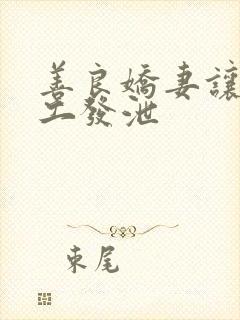 善良嬌妻讓
工發泄
束尾